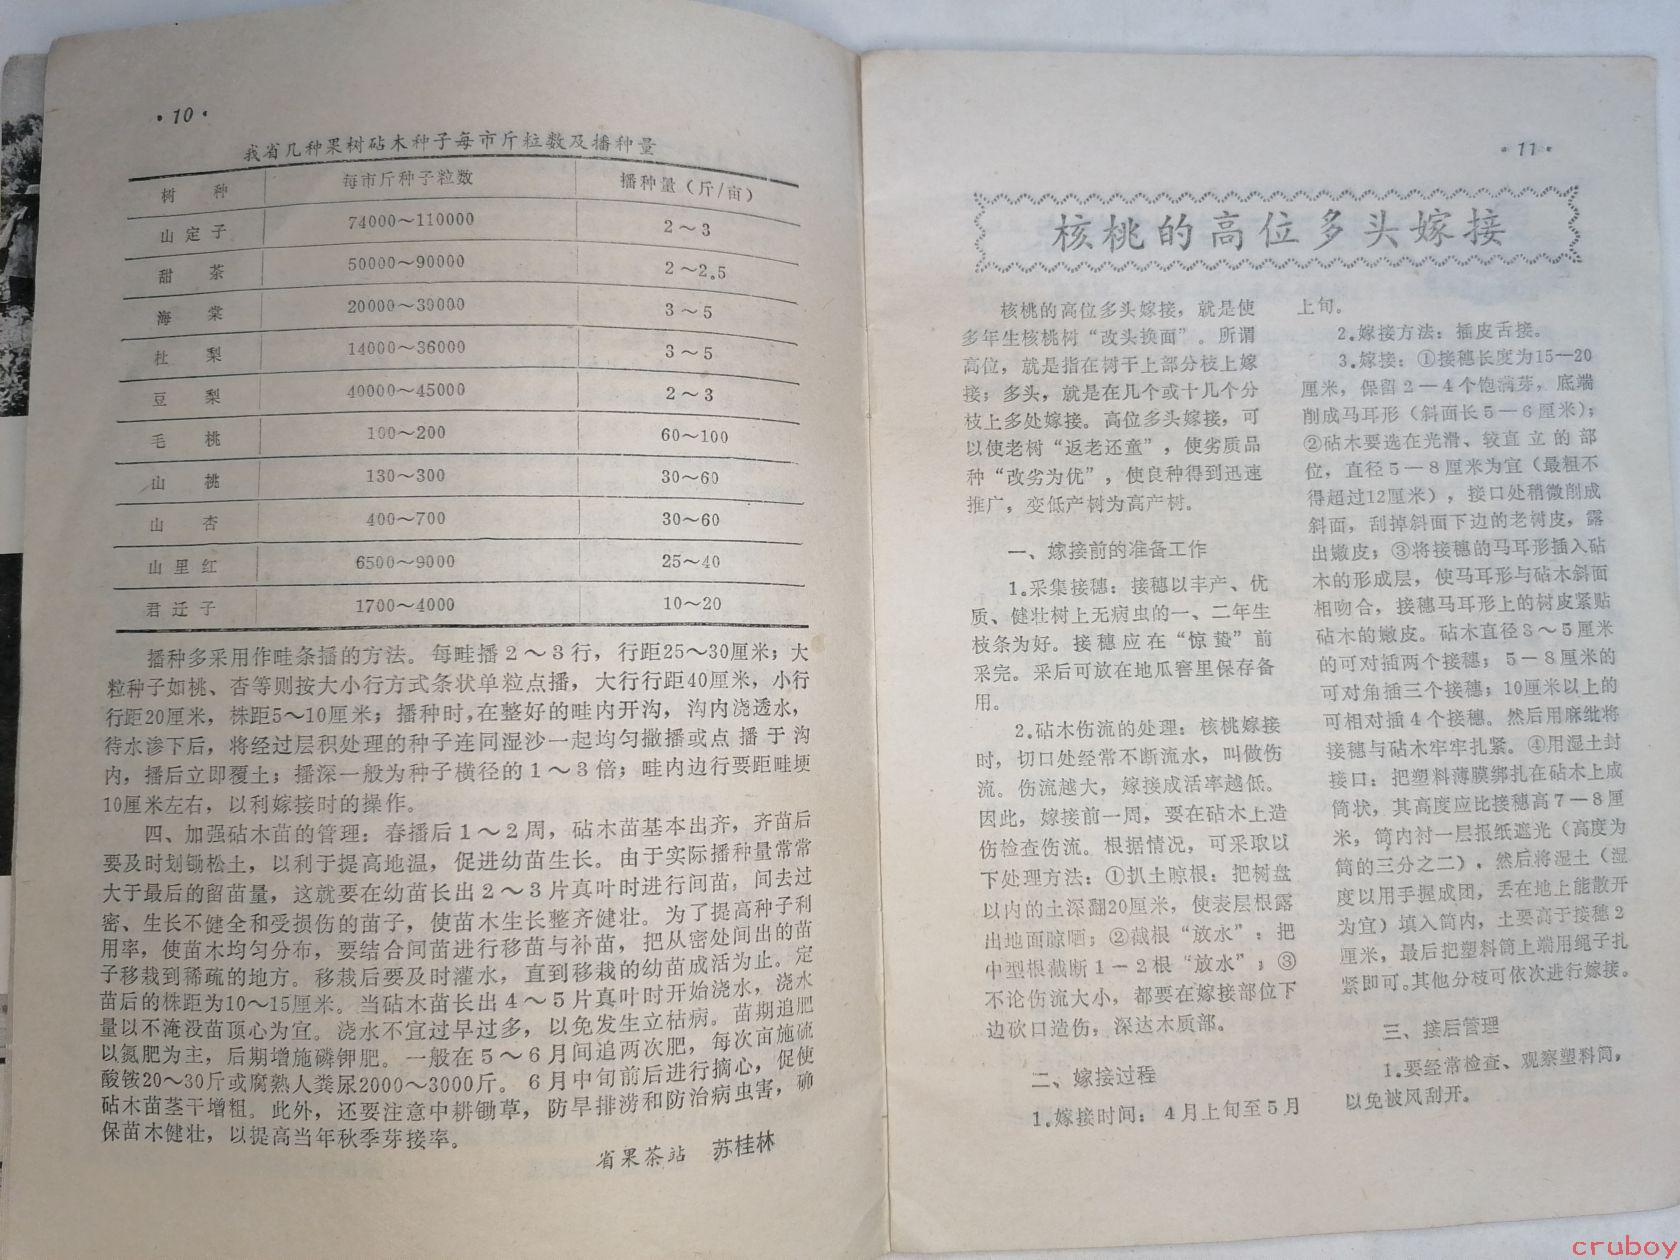 ·10·
我省几种果树砧木种子每市斤粒数及播种量
树 种 每市斤种子粒数 播种量（斤/亩）
山定子 74000～110000 2～3
甜 茶 50000～90000 2～2.5
海 棠 20000～30000 3～5
杜 梨 14000～36000 3～5
豆 梨 40000～45000 2～3
毛 桃 100～200 60～100
山 桃 130～300 30～60
山 杏 400～700 30～60
山里红 6500～9000 25～40
君迁子 1700～4000 10～20
播种多采用作畦条播的方法。每畦播2～3行，行距25～30厘米；大
粒种子如桃、杏等则按大小行方式条状单粒点播，大行行距40厘米，小行
行距20厘米，株距5～10厘米；播种时，在整好的畦内开沟，沟内浇透水，
待水渗下后，将经过层积处理的种子连同湿沙一起均匀撒播或点播于沟
内，播后立即覆土；播深一般为种子横径的1～3倍；畦内边行要距畦埂
10厘米左右，以利嫁接时的操作。
四、加强砧木苗的管理：春播后1～2周，砧木苗基本出齐，齐苗后
要及时划锄松土，以利于提高地温，促进幼苗生长。由于实际播种量常常
大于最后的留苗量，这就要在幼苗长出2～3片真叶时进行间苗，间去过
密、生长不健全和受损伤的苗子，使苗木生长整齐健壮。为了提高种子利
用率，使苗木均匀分布，要结合间苗进行移苗与补苗，把从密处间出的苗
子移栽到稀疏的地方。移栽后要及时灌水，直到移栽的幼苗成活为止。定
苗后的株距为10～15厘米。当砧木苗长出4～5片真叶时开始浇水，浇水
量以不淹没苗顶心为宜。浇水不宜过早过多，以免发生立枯病。苗期追肥
以氮肥为主，后期增施磷钾肥。一般在5～6月间追两次肥，每次亩施硫
酸铵20～30斤或腐熟人粪尿2000～3000斤。6月中旬前后进行摘心，促使
砧木苗茎干增粗。此外，还要注意中耕锄草，防旱排涝和防治病虫害，确
保苗木健壮，以提高当年秋季芽接率。
省果茶站 苏桂林
·11·
核桃的高位多头嫁接
核桃的高位多头嫁接，就是使
多年生核桃树“改头换面”。所谓
高位，就是指在树干上部分枝上嫁
接；多头，就是在几个或十几个分
枝上多处嫁接。高位多头嫁接，可
以使老树“返老还童”，使劣质品
种“改劣为优”，使良种得到迅速
推广，变低产树为高产树。
一、嫁接前的准备工作
1.采集接穗：接穗以丰产、优
质、健壮树上无病虫的一、二年生
枝条为好。接穗应在“惊蛰”前
采完。采后可放在地瓜窖里保存备
用。
2.砧木伤流的处理：核桃嫁接
时，切口处经常不断流水，叫做伤
流。伤流越大，嫁接成活率越低。
因此，嫁接前一周，要在砧木上造
伤检查伤流。根据情况，可采取以
下处理方法：①扒土晾根：把树盘
以内的土深翻20厘米，使表层根露
出地面晾晒；②截根“放水”：把
中型根截断1－2根“放水”；③
不论伤流大小，都要在嫁接部位下
边砍口造伤，深达木质部。
二、嫁接过程
1.嫁接时间：4月上旬至5月
上旬。
2.嫁接方法：插皮舌接。
3.嫁接：①接穗长度为15—20
厘米，保留2－4个饱满芽，底端
削成马耳形（斜面长5－6厘米）；
②砧木要选在光滑、较直立的部
位，直径5－8厘米为宜（最粗不
得超过12厘米），接口处稍微削成
斜面，刮掉斜面下边的老树皮，露
出嫩皮；③将接穗的马耳形插入砧
木的形成层，使马耳形与砧木斜面
相吻合，接穗马耳形上的树皮紧贴
砧木的嫩皮。砧木直径3～5厘米
的可对插两个接穗；5－8厘米的
可对角插三个接穗；10厘米以上的
可相对插4个接穗。然后用麻纰将
接穗与砧木牢牢扎紧。④用湿土封
接口：把塑料薄膜绑扎在砧木上成
筒状，其高度应比接穗高7－8厘
米，筒内衬一层报纸遮光（高度为
筒的三分之二），然后将湿土（湿
度以用手握成团，丢在地上能散开
为宜）填入筒内，土要高于接穗2
厘米，最后把塑料筒上端用绳子扎
紧即可。其他分枝可依次进行嫁接。
三、接后管理
1.要经常检查、观察塑料筒，
以免被风刮开。
cruboy